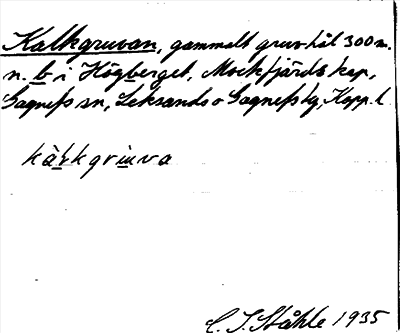 Kalkgruvan, gammalt gruvhål 300 m.
n. b. i Högberget, Mockfjärds kap,
Gagnefs sn, Leksands o Gagnefs tg, Kopp. l.
kàlkgruva
C. I. Ståhle 1935